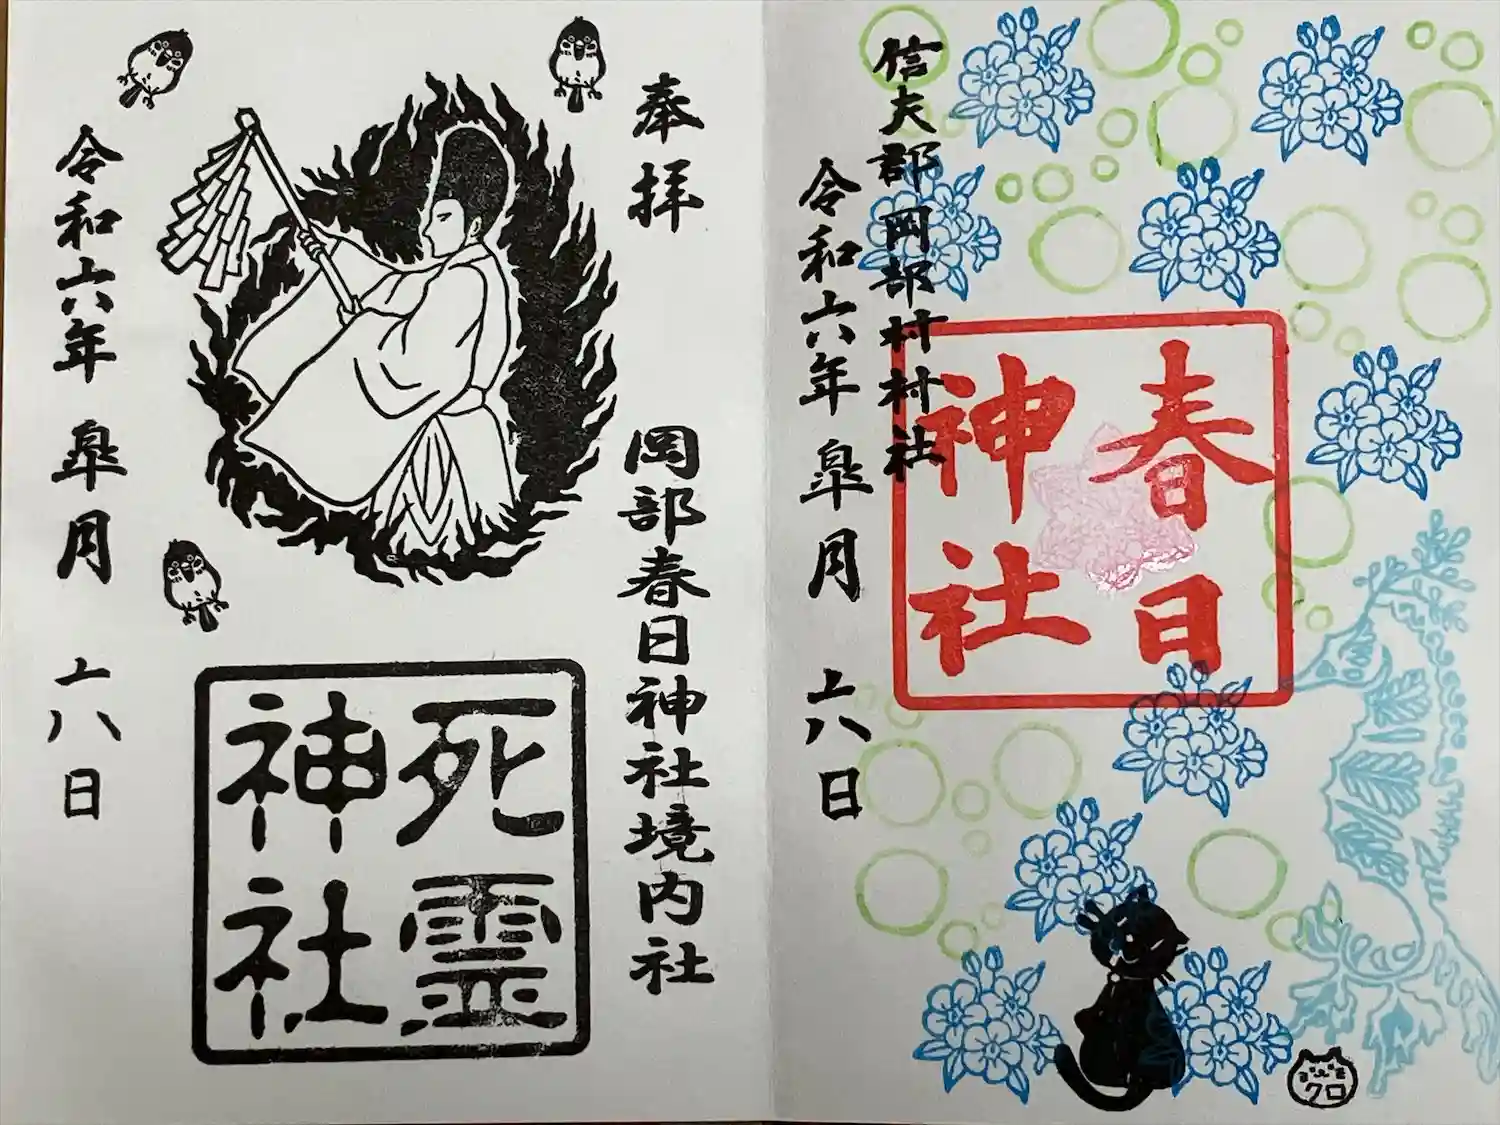 信夫郡岡部村村社
春日
神社
令和六年 皐月 十八日
クロ
奉拝
岡部春日神社境内社
死霊
神社
令和六年 皐月 十八日